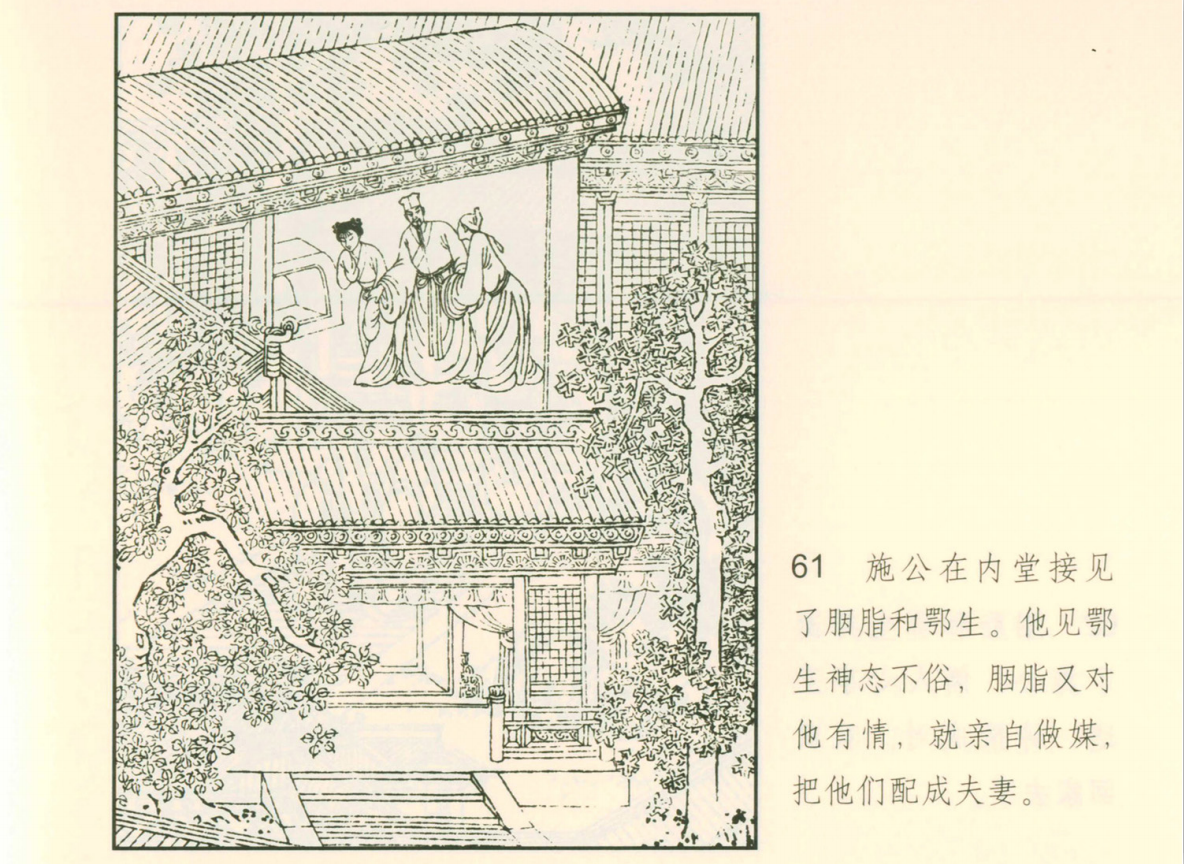 61 施公在内堂接见
了胭脂和鄂生。他见鄂
生神态不俗，胭脂又对
他有情，就亲自做媒，
把他们配成夫妻。